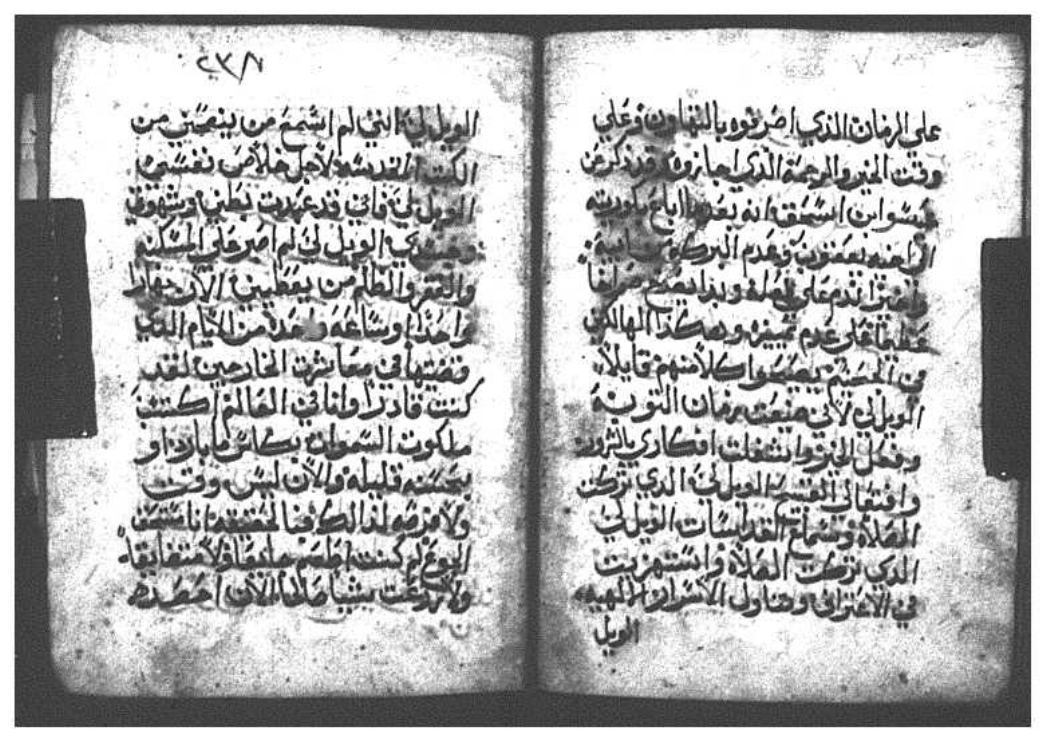 على الزمان الذي اصرفوه بالتهاون وعلي
وقت الخير والرحمة الذي اجازوه وقد ذكر عن
عيسوا بن اسحق انه بعد ما اباع بكوريته
لاخيه يعقوب وعدم البركة
واخيرًا ندم على فعله وبدا يصرخ صراخًا
عظيمًا على عدم تمييزه وهكذا الهالكين
في الجحيم يصيحوا كلامنهم قايلا
الويل لي لاني ضيعت زمان التوبة
وفعل الخير واشغلت افكاري بالثروت
وافتعالي القبيح الويل لي الذي تركت
الصلاة وسماع القداسات الويل لي
الذي تركت الصلاة واستهزيت
في الاعتراف وتناول الاسرار الالهيه
الويل
٢٣٨
الويل لي انني لم اسمع من ينصحني من
الكتب المقدسه لاجل خلاص نفسي
الويل لي فاني قد عبدت بطني وشهوتي
وجسدي الويل لي لم اصبر على المسكنه
والفقر والظلم من يعطيني الان نهار
واحدًا وساعة واحدة من الايام الذي
قضيتها في معاشرت الخارجين لقد
كنت قادرًا وانا في العالم اكتسب
ملكوت السموات بكاس ما بارد او
بحسنه قليله والان ليس وقت
ولا فرصه لذالك
الجوع لم كنت اطعم جايعًا
ولا زرعت شيا ماذا الان احصده